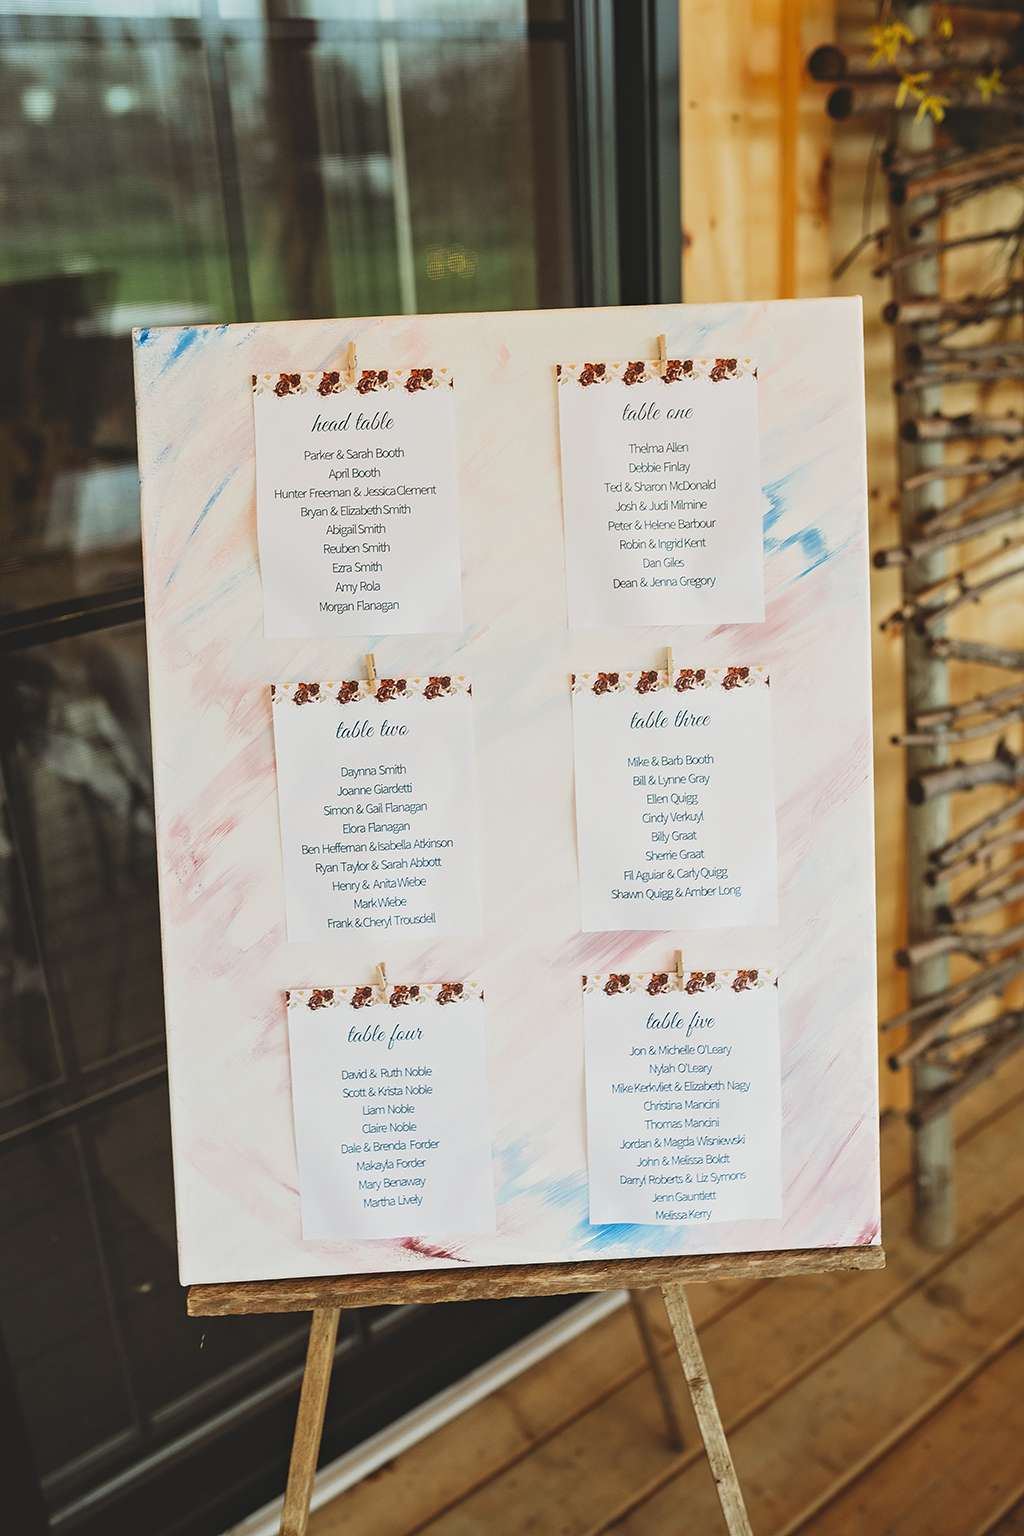 head table
Parker & Sarah Booth
April Booth
Hunter Freeman & Jessica Clement
Bryan & Elizabeth Smith
Abigail Smith
Reuben Smith
Ezra Smith
Amy Rola
Morgan Flanagan
table one
Thelma Allen
Debbie Finlay
Ted & Sharon McDonald
Josh & Judi Milmine
Peter & Helene Barbour
Robin & Ingrid Kent
Dan Giles
Dean & Jenna Gregory
table two
Daynna Smith
Joanne Giardetti
Simon & Gail Flanagan
Elora Flanagan
Ben Heffernan & Isabella Atkinson
Ryan Taylor & Sarah Abbott
Henry & Anita Wiebe
Mark Wiebe
Frank & Cheryl Trousdell
table three
Mike & Barb Booth
Bill & Lynne Gray
Ellen Quigg
Cindy Verkuyl
Billy Graat
Sherrie Graat
Fil Aguiar & Carly Quigg
Shawn Quigg & Amber Long
table four
David & Ruth Noble
Scott & Krista Noble
Liam Noble
Claire Noble
Dale & Brenda Forder
Makayla Forder
Mary Benaway
Martha Lively
table five
Jon & Michelle O'Leary
Nylah O'Leary
Mike Kerkvliet & Elizabeth Nagy
Christina Mancini
Thomas Mancini
Jordan & Magda Wisniewski
John & Melissa Boldt
Darryl Roberts & Liz Symons
Jenn Gauntlett
Melissa Kerry